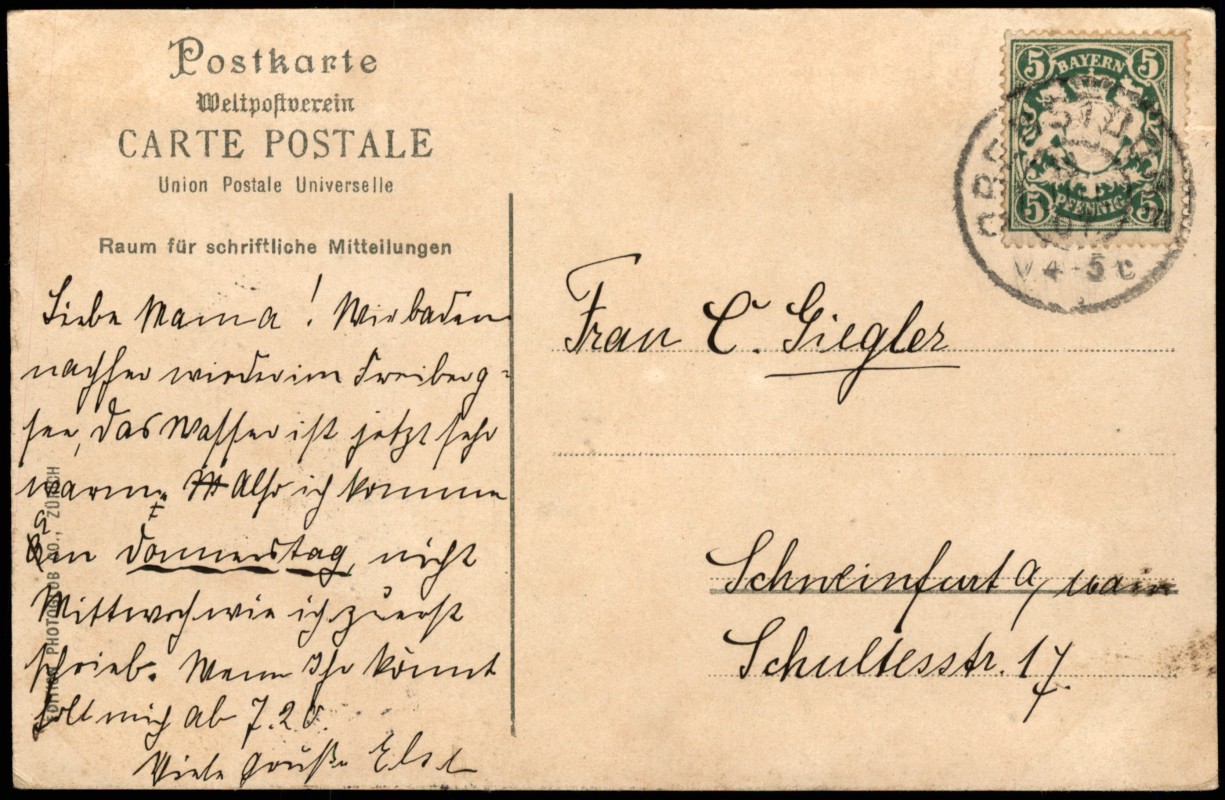 Postkarte
Weltpostverein
CARTE POSTALE
Union Postale Universelle
Raum für schriftliche Mitteilungen
Liebe Mama! Wir baden
nachher wieder im Freiberg-
see, das Wasser ist jetzt sehr
warm. Also ich komme
am Donnerstag, nicht
Mittwoch wie ich zuerst
schrieb. Wenn Ihr könnt
holt mich ab 7.20.
Viele Grüße
PHOTOGLOB CO., ZÜRICH
5 BAYERN 5
5 PFENNIG 5
OBERSTDORF
V 4-5
Frau C. Giegler
Schweinfurt a/Main
Schultesstr. 17.